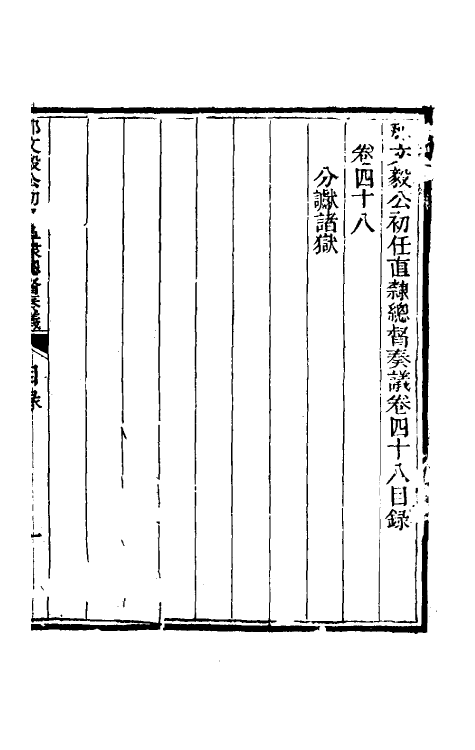 那文毅公初任直隸總督奏議卷四十八目錄
卷四十八
分讞諸獄
那文毅公初任直隸總督奏議
目錄
一